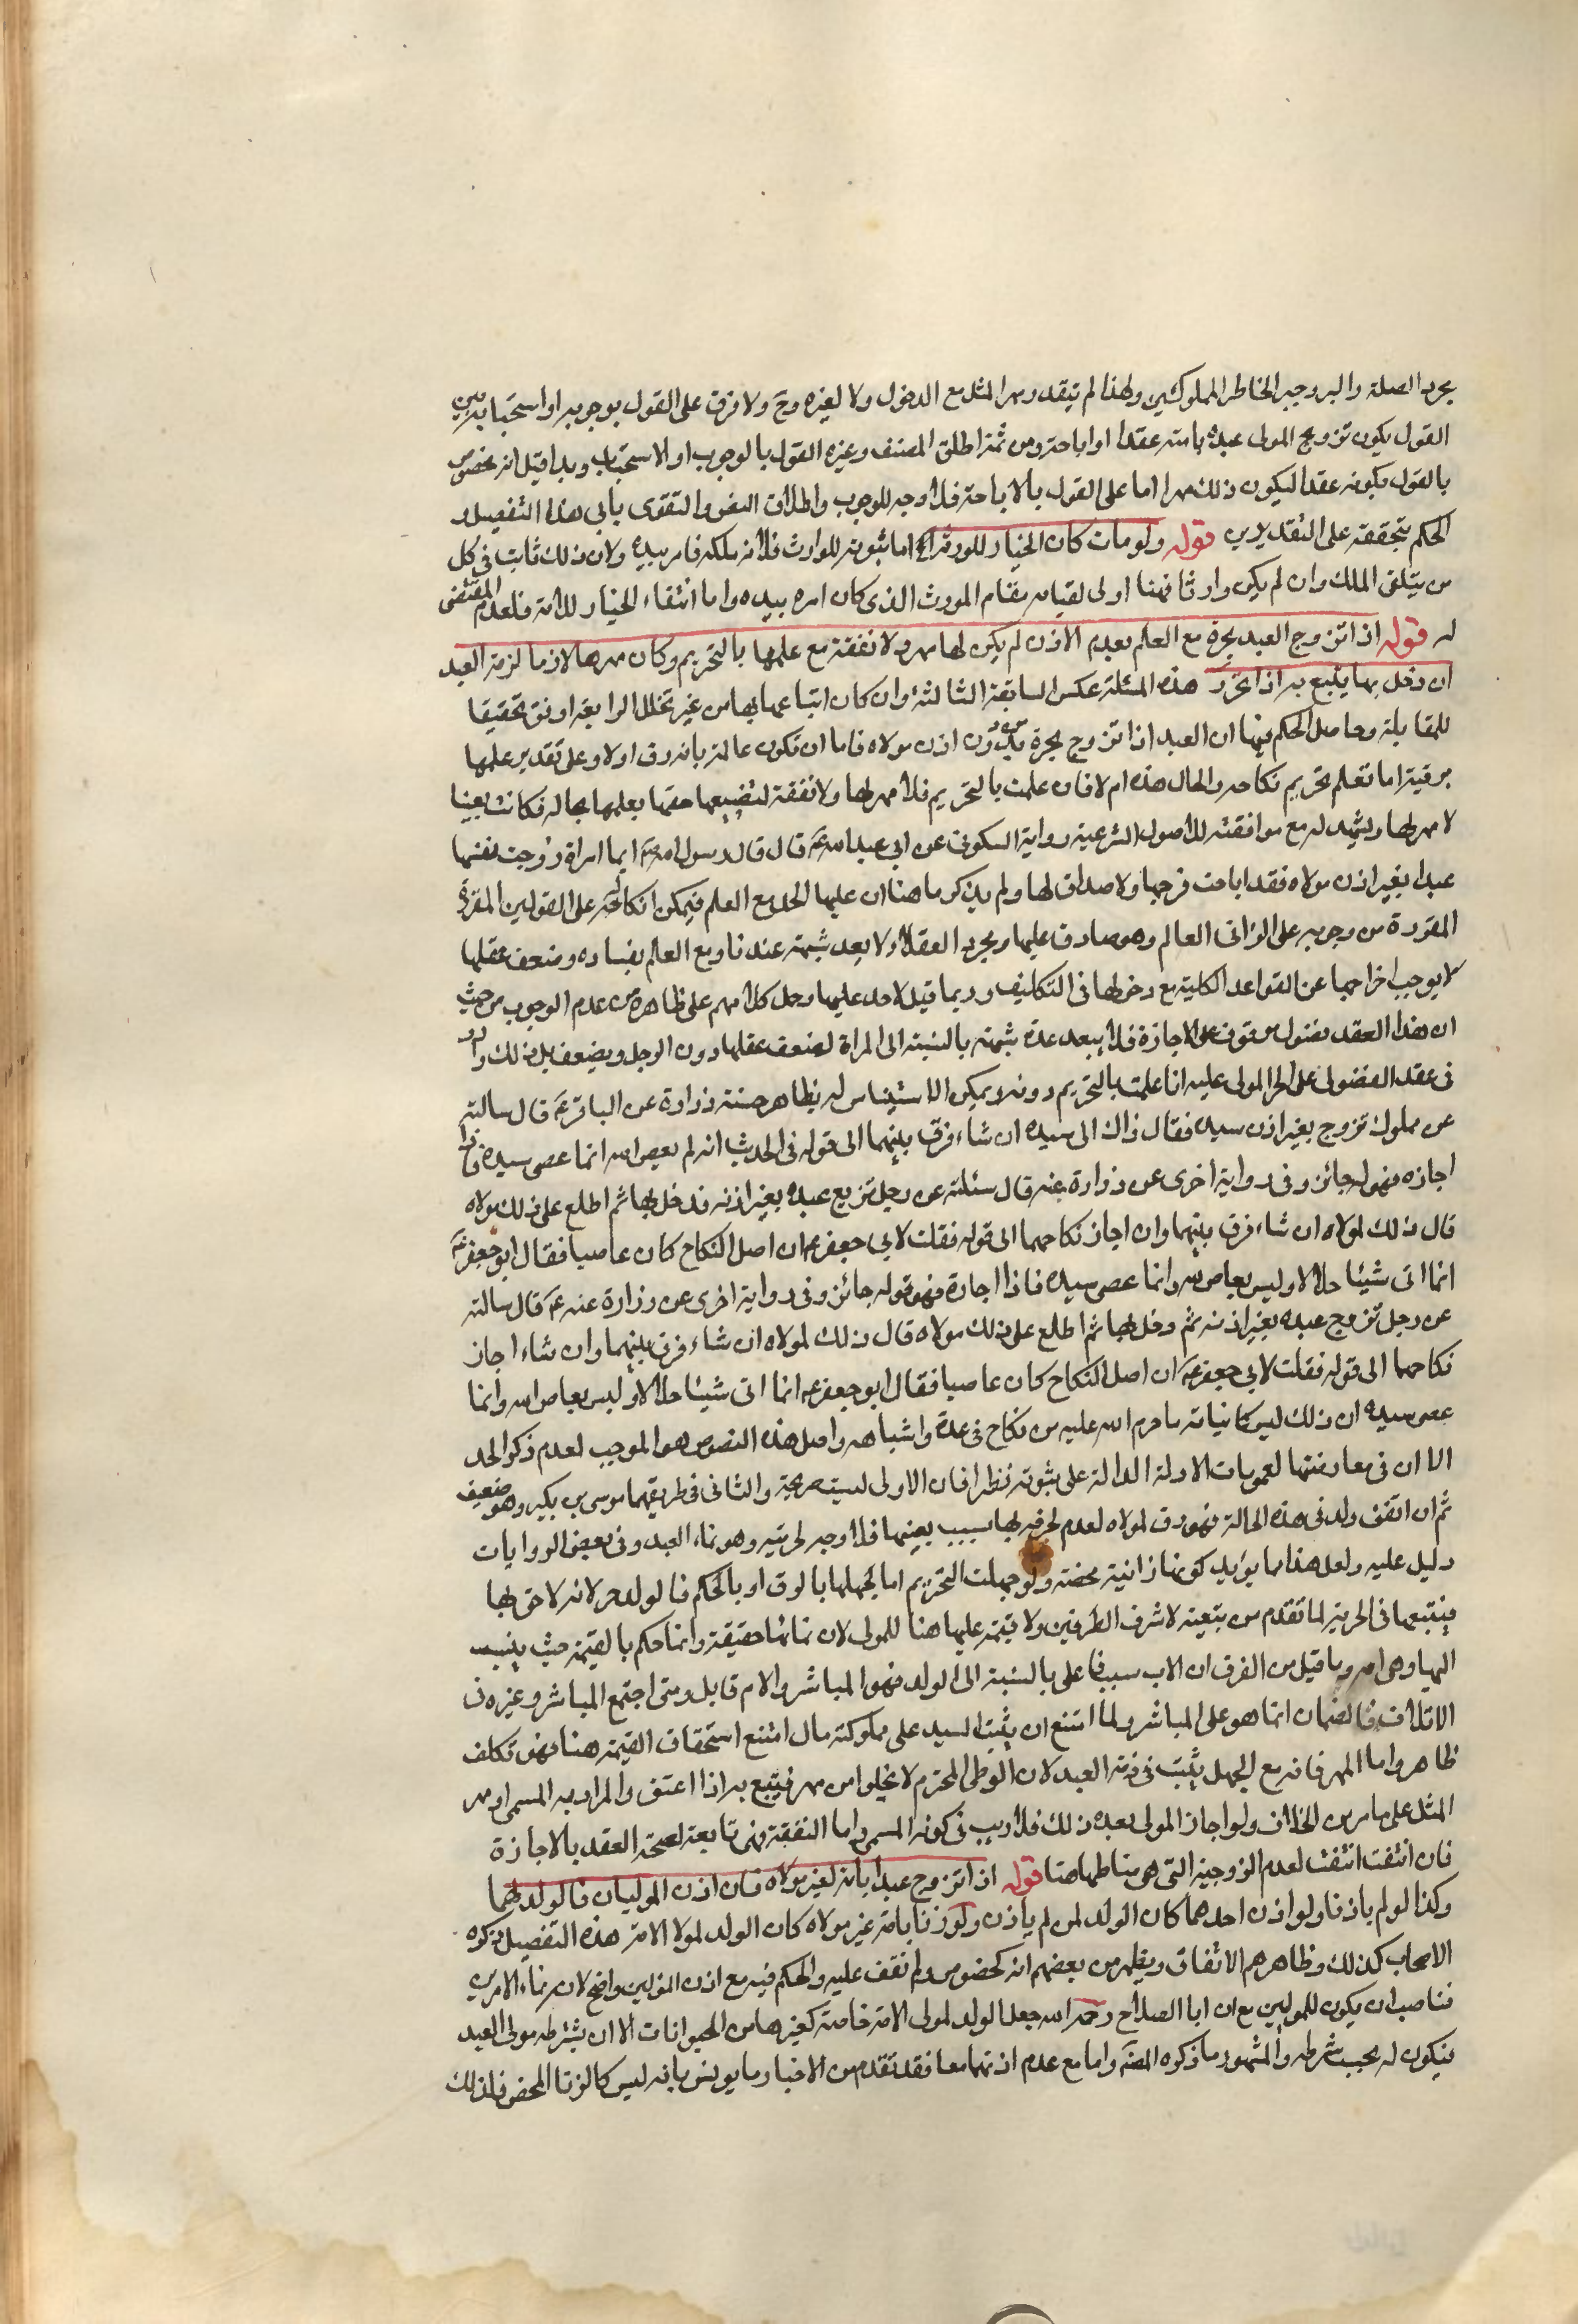 بجرد الصلة والبر وجبر الخاطر المملوكين ولهذا لم يتقدر بمهر المثل مع الدخول ولا لغيره وح ولا فرق على القول بوجوبه او استحبابه بين
القول بكون تزويج المولى عبده بامته عقدا او اباحة ومن ثمة اطلق المصنف وغيره القول بالوجوب او الاستحباب وبدا قيل انه مخصوص
بالقول بكونه عقدا ليكون ذلك مهرا اما على القول بالاباحة فلا وجه للوجوب واطلاق النص والتقوى يأبى هذا التفصيل و
الحكم بتحققه على التقديرين قوله ولو مات كان الخيار للورثة الخ اما ثبوته للوارث فلانه ملكه فامر بيده ولان ذلك ثابت في كل
من يتلقى الملك وان لم يكن وارثا فهنا اولى لقيامه مقام المورث الذى كان امره بيده واما انتفاء الخيار للامة فلعدم المقتضى
له قوله اذا تزوج العبد بحرة مع العلم بعدم الاذن لم يكن لها مهر ولا نفقة مع علمها بالتحريم وكان مهرها لازما لزمة العبد
ان دخل بها يتبع به اذا تحرر هذه المسئلة عكس السابقة الثالثة وان كان اتباعها بها من غير تخلل الرابعة اوفق تحقيقا
للمقابلة وحاصل الحكم فيها ان العبد اذا تزوج بحرة بدون اذن مولاه فاما ان تكون عالمة بانه رق اولا وعلى تقدير علمها
برقيته اما تعلم تحريم نكاحه والحال هذه ام لا فان علمت بالتحريم فلا مهر لها ولا نفقة لتضييعها حقها بعلمها بحاله فكانت بغيا
لا مهر لها ويشهد له مع موافقته للاصول الشرعية رواية السكونى عن ابى عبد الله ع قال قال رسول الله ص ايما امراة زوجت نفسها
عبدا بغير اذن مولاه فقد اباحت فرجها ولا صداق لها ولم يذكروا هنا ان عليها الحد مع العلم فيمكن اتكالهم على القوانين المقررة
المقررة من وجوبه على الزانى العالم وهو صادق عليها ومجرد العقد لا يعد شبهة عندنا ومع العالم بفساده وضعف عقلها
لا يوجب اخراجها عن القواعد الكلية مع دخولها فى التكليف وربما قيل لا حد عليها وحمل كلامهم على ظاهره من عدم الوجوب من حيث
ان هذا العقد فضولى موقوف على الاجازة فلا يبعد عده شبهة بالنسبة الى المراة لضعف عقلها دون الرجل ويضعف بل ذلك وارد
فى عقد الفضولى على الحر المولى عليه اذا علمت بالتحريم دونه ويمكن الاستيناس له بظاهر حسنة زرارة عن الباقر ع قال سالته
عن مملوك تزوج بغير اذن سيده فقال ذاك الى سيده ان شاء فرق بينهما الى قوله فى الحديث انه لم يعص الله انما عصى سيده فاذا
اجازه فهو له جائز وفى رواية اخرى عن زرارة عنه قال سئلته عن رجل تزوج عبده بغير اذنه فدخل بها ثم اطلع على ذلك مولاه
قال ذلك لمولاه ان شاء فرق بينهما وان اجاز نكاحهما الى قوله فقلت لابى جعفر ع ان اصل النكاح كان عاصيا فقال ابو جعفر ع
انما اتى شيئا حلالا وليس بعاص لله وانما عصى سيده فاذا اجازه فهو قوله جائز وفى رواية اخرى عن زرارة عنه ع قال سالته
عن رجل تزوج عبده بغير اذنه ثم دخل بها ثم اطلع على ذلك مولاه قال ذلك لمولاه ان شاء فرق بينهما وان شاء اجاز
نكاحهما الى قوله فقلت لابى جعفر ع ان اصل النكاح كان عاصيا فقال ابو جعفر ع انما اتى شيئا حلالا وليس بعاص الله وانما
عصى سيده ان ذلك ليس كاتيانه ما حرم الله عليه من نكاح فى عدة واشباهه واصل هذه النصوص هو الموجب لعدم ذكر الحد
الا ان فى معارضتها لعمومات الادلة الدالة على ثبوته نظرا فان الاولى ليست صريحة والثانى فى طريقهما موسى بن بكير وهو ضعيف
ثم ان اتفق ولد فى هذه الحالة فهو رق لمولاه لعدم لحوقه بها بسبب بغيها فلا وجه لحريته وهو نماء العبد وفى بعض الروايات
دليل عليه ولعل هذا مما يؤيد كونها زانية محضة ولو جهلت التحريم اما لجهلها بالرق او بالحكم فالولد حر لانه لاحق بها
فيتبعها فى الحرية لما تقدم من تبعيته لاشرف الطرفين ولا قيمة عليها هنا للمولى لان نمائها حقيقة وانما حكم بالقيمة حيث ينسب
اليها وهى امه وما قيل من الفرق ان الاب سبب فاعلى بالنسبة الى الولد فهو المباشر والام قابل ومتى اجتمع المباشر وغيره فى
الاتلاف فالضمان انما هو على المباشر ولما امتنع ان يثبت للسيد على مملوكته مال امتنع استحقاق القيمة هنا فهو تكلف
ظاهر واما المهر فانه مع الجهل يثبت فى ذمة العبد لان الوطى المحترم لا يخلوا من مهر فيتبع به اذا اعتق والمراد به المسمى او مهر
المثل على ما مر من الخلاف ولو اجاز المولى بعد ذلك فلا ريب فى كونه المسمى واما النفقة فهى تابعة لصحة العقد بالاجازة
فان انتفت انتفت لعدم الزوجية التى هى مناطها هنا قوله اذا تزوج عبد بامة لغير مولاه فان اذن الموليان فالولد لهما
وكذا لو لم ياذنا ولو اذن احدهما كان الولد لمن لم ياذن ولو زنا بامة غير مولاه كان الولد لمولا الامة هذه التفصيل ذكره
الاصحاب كذلك وظاهرهم الاتفاق ويظهر من بعضهم انه كخصوص ولم نقف عليه والحكم فيه مع اذن الموليين واضح لانه نماء الامرين
فناسب ان يكون للموليين مع ان ابا الصلاح رحمه الله جعل الولد لمولى الامة خاصة كغيرها من الحيوانات الا ان يشترطه مولى العبد
فيكون له بحسب شرطه والمشهور ما ذكره المصنف واما مع عدم اذنهما معا فقد تقدم من الاخبار ما يؤنس بانه ليس كالزنا المحض فلذلك